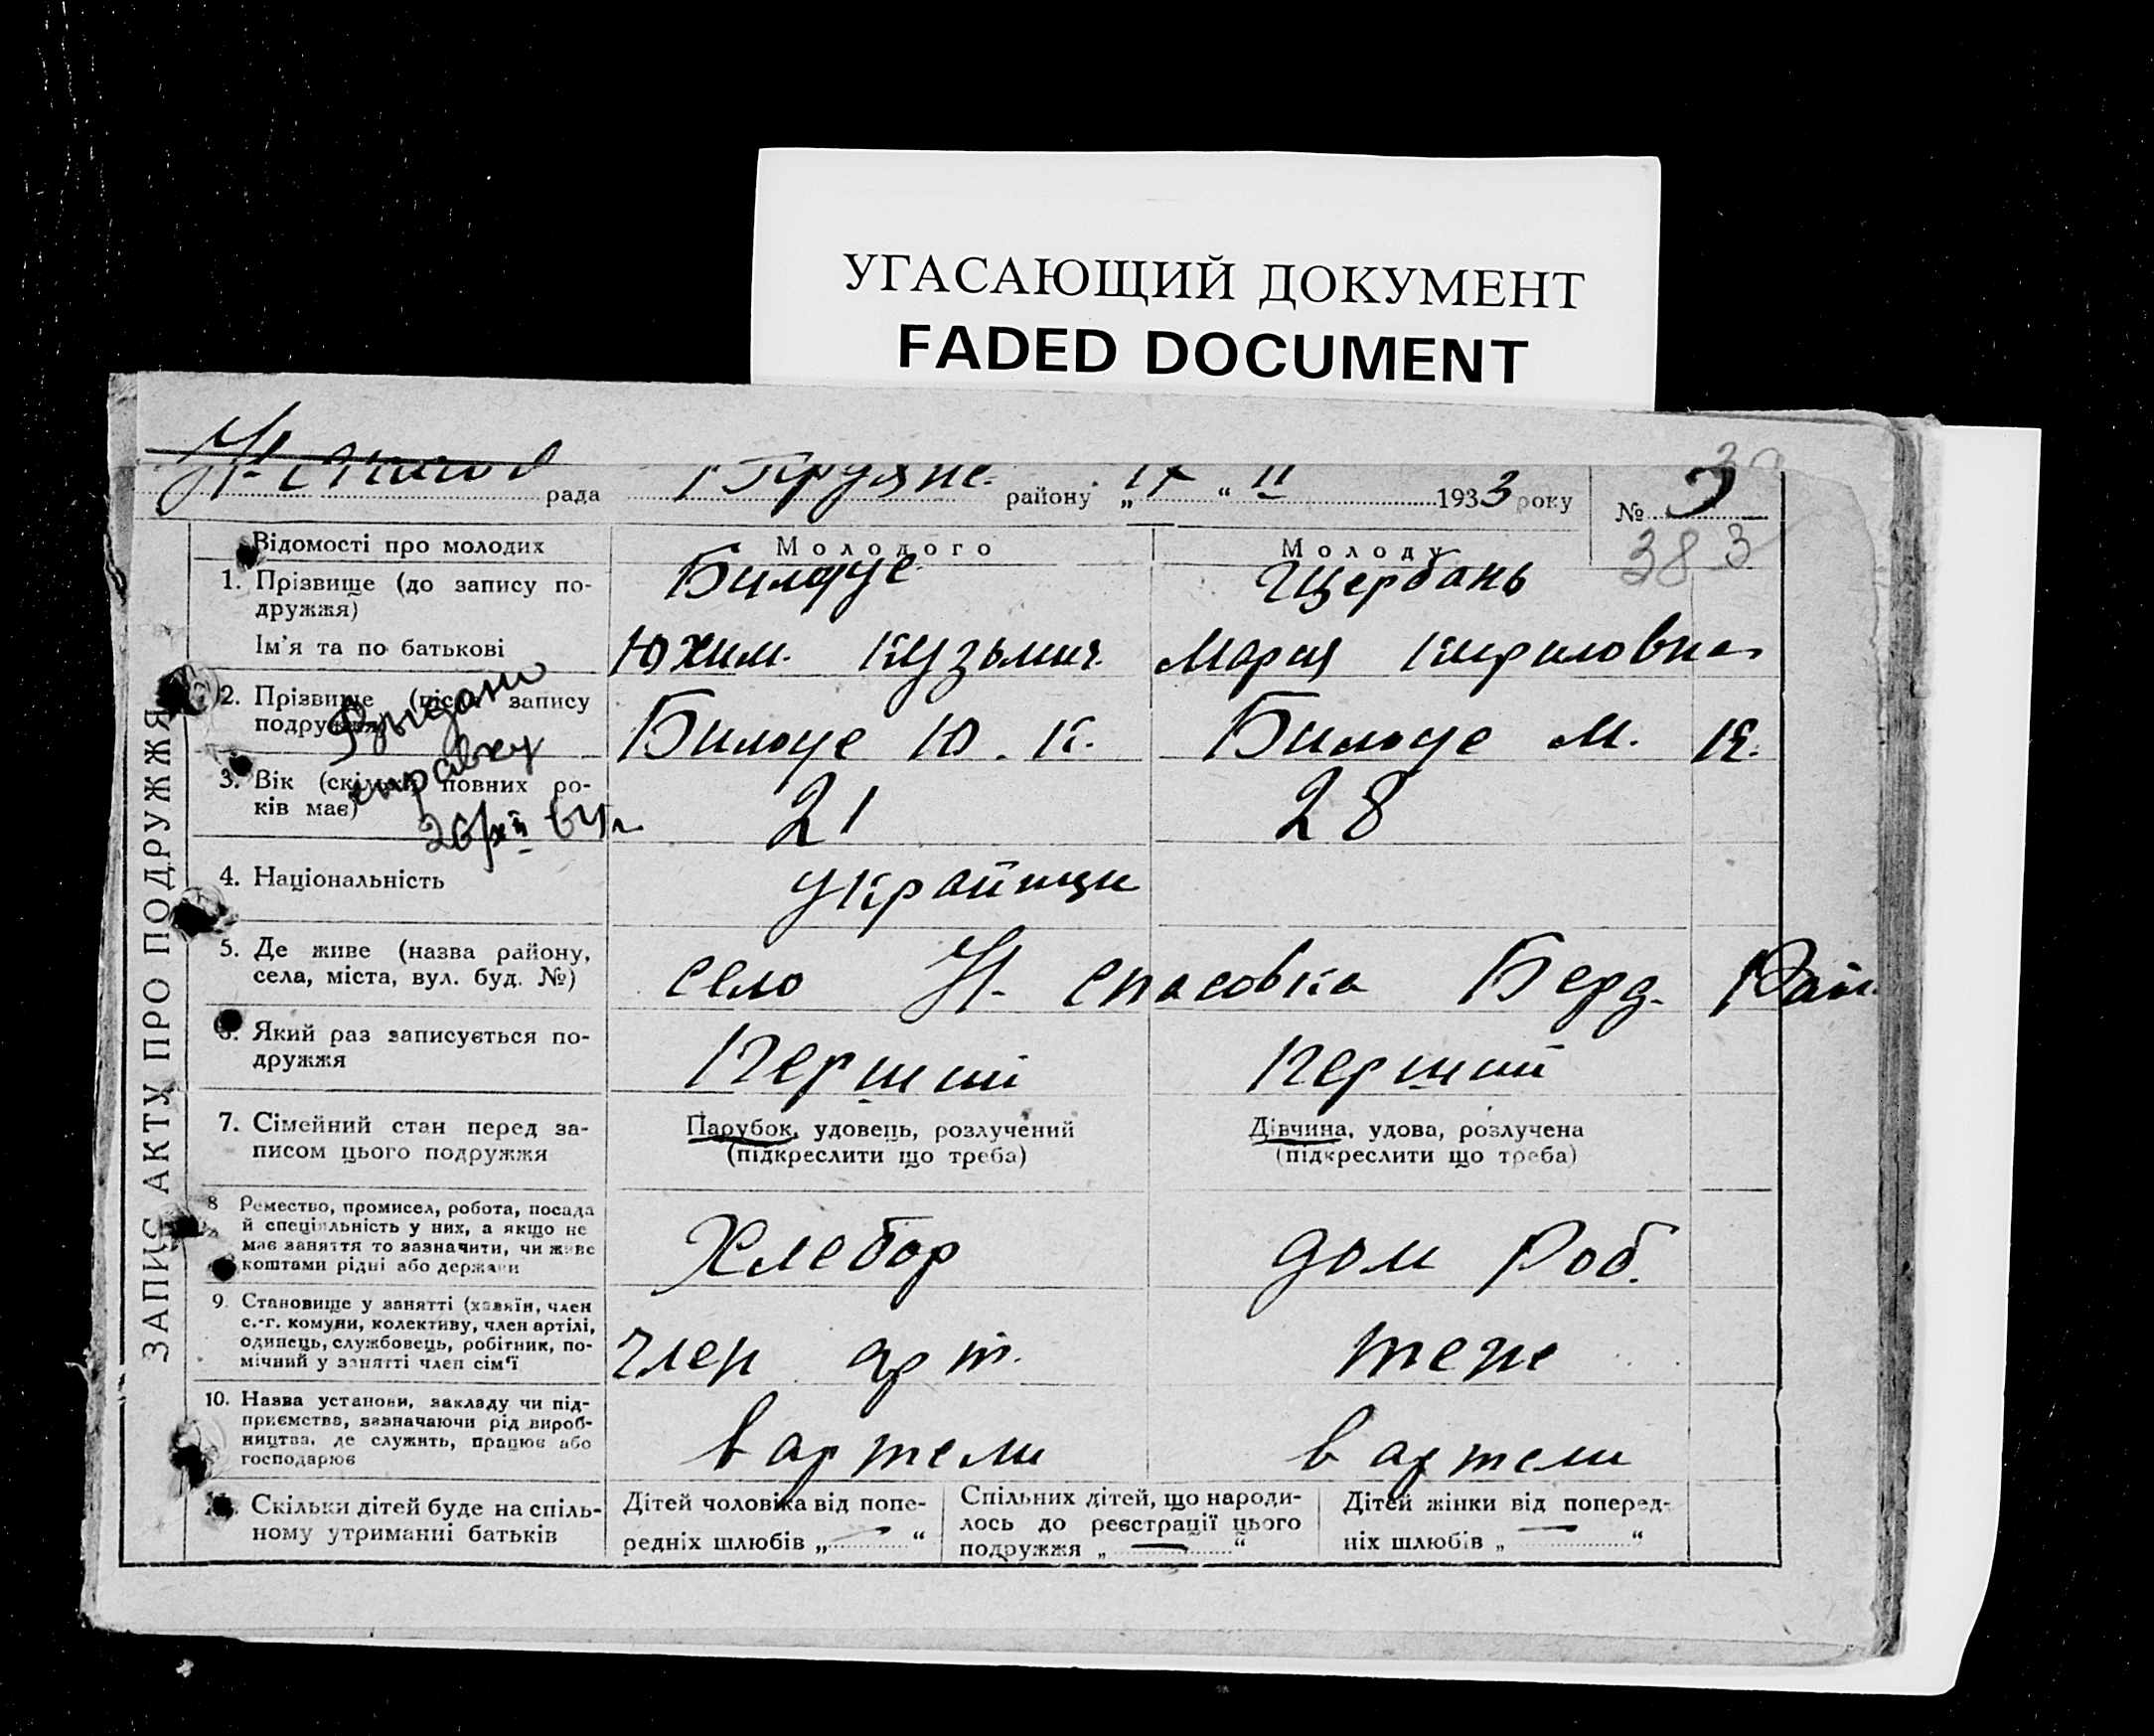 УГАСАЮЩИЙ ДОКУМЕНТ
FADED DOCUMENT
рада району „ “ II 1933 року №
383
ЗАПИС АКТУ ПРО ПОДРУЖЖЯ
Відомості про молодих Молодого Молоду
1. Прізвище (до запису по-
дружжя)
Билоус Щербань
Ім'я та по батькові Юхим. Кузьмич. Мария Кириловна
2. Прізвище (після запису
подружжя)
Билоус Ю. К. Билоус М. К.
Выдано
справку
26/XII 64 г.
3. Вік (скільки повних ро-
ків має)
21 28
4. Національність украйнци
5. Де живе (назва району,
села, міста, вул. буд. №)
село Н. Спасовка Берд. Район
6. Який раз записується по-
дружжя
Перший Перший
7. Сімейний стан перед за-
писом цього подружжя
Парубок, удовець, розлучений
(підкреслити що треба)
Дівчина, удова, розлучена
(підкреслити що треба)
8 Ремество, промисел, робота, посада
й спеціяльність у них, а якщо не
має заняття то зазначити, чи живе
коштами рідні або держави
Хлебор дом Роб.
9. Становище у занятті (хазяїн, член
с.-г. комуни, колективу, член артілі,
одинець, службовець, робітник, по-
мічний у занятті член сім'ї
член арт. теж
10. Назва установи, закладу чи під-
приємства, зазначаючи рід вироб-
ництва, де служить, працює або
господарює
в артели в артели
11. Скільки дітей буде на спіль-
ному утриманні батьків
Дітей чоловіка від попе-
редніх шлюбів „ — “
Спільних дітей, що народи-
лось до реєстрації цього
подружжя „ — “
Дітей жінки від поперед-
ніх шлюбів „ — “